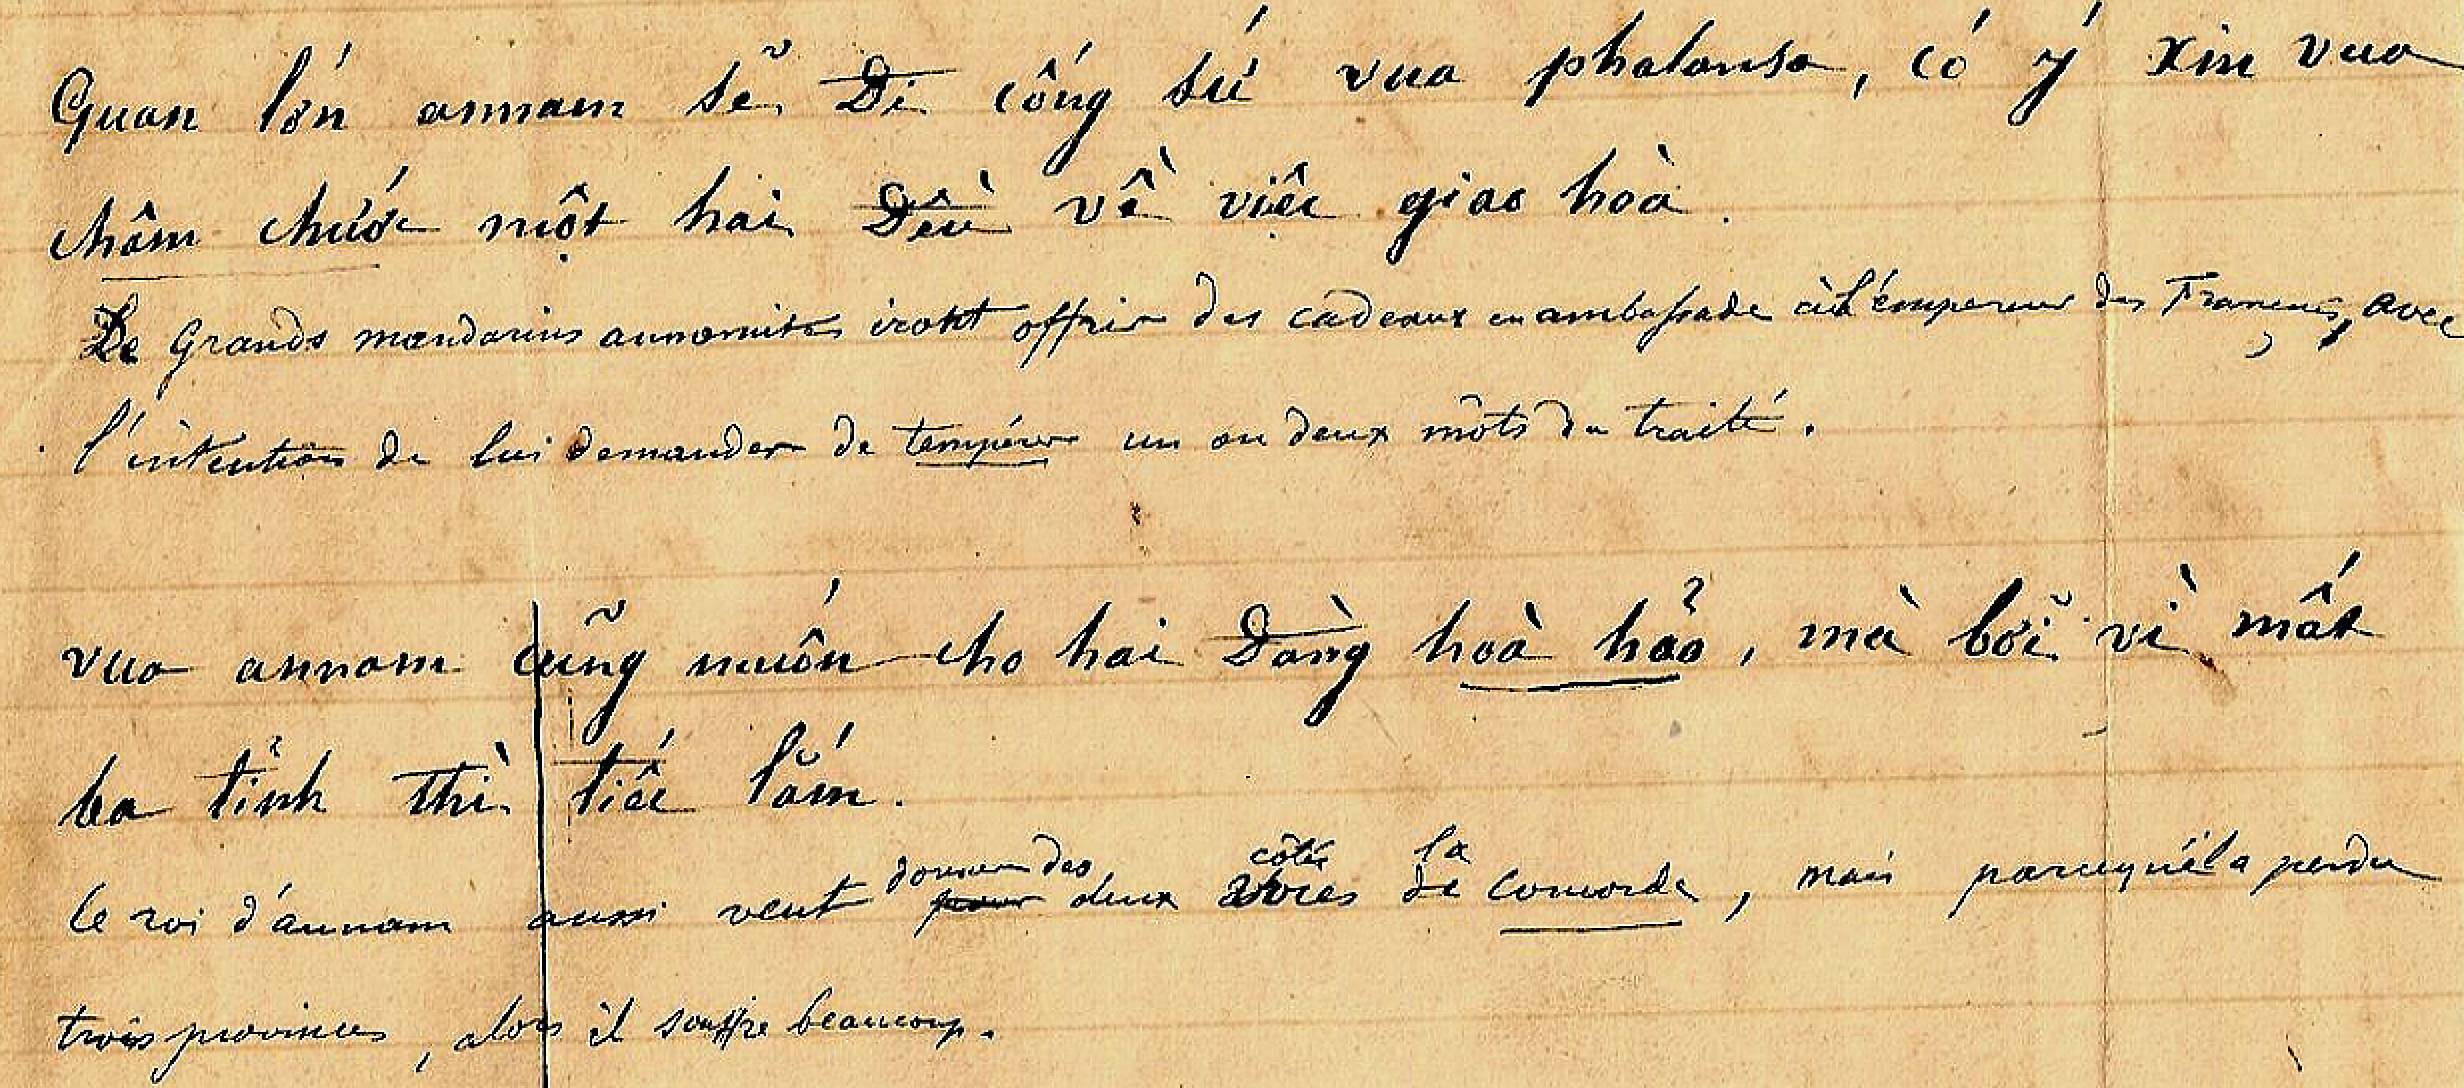 Quan lớn annam sẽ Đi cống sứ vua phalansa, có ý xin vua
châm chước một hai Đều về việc giao hoà.
De Grands mandarins annamites iront offrir des cadeaux en ambassade à l'empereur des Français, avec
l'intention de lui demander de tempérer un ou deux mots du traité.
vua annam cũng muốn cho hai Đàng hoà hảo, mà bởi vì mất
ba tỉnh thì tiếc lắm.
donner des côtés la
le roi d'annam aussi veut pour deux de concorde, mais parcequ'il a perdu
trois provinces, alors il souffre beaucoup.